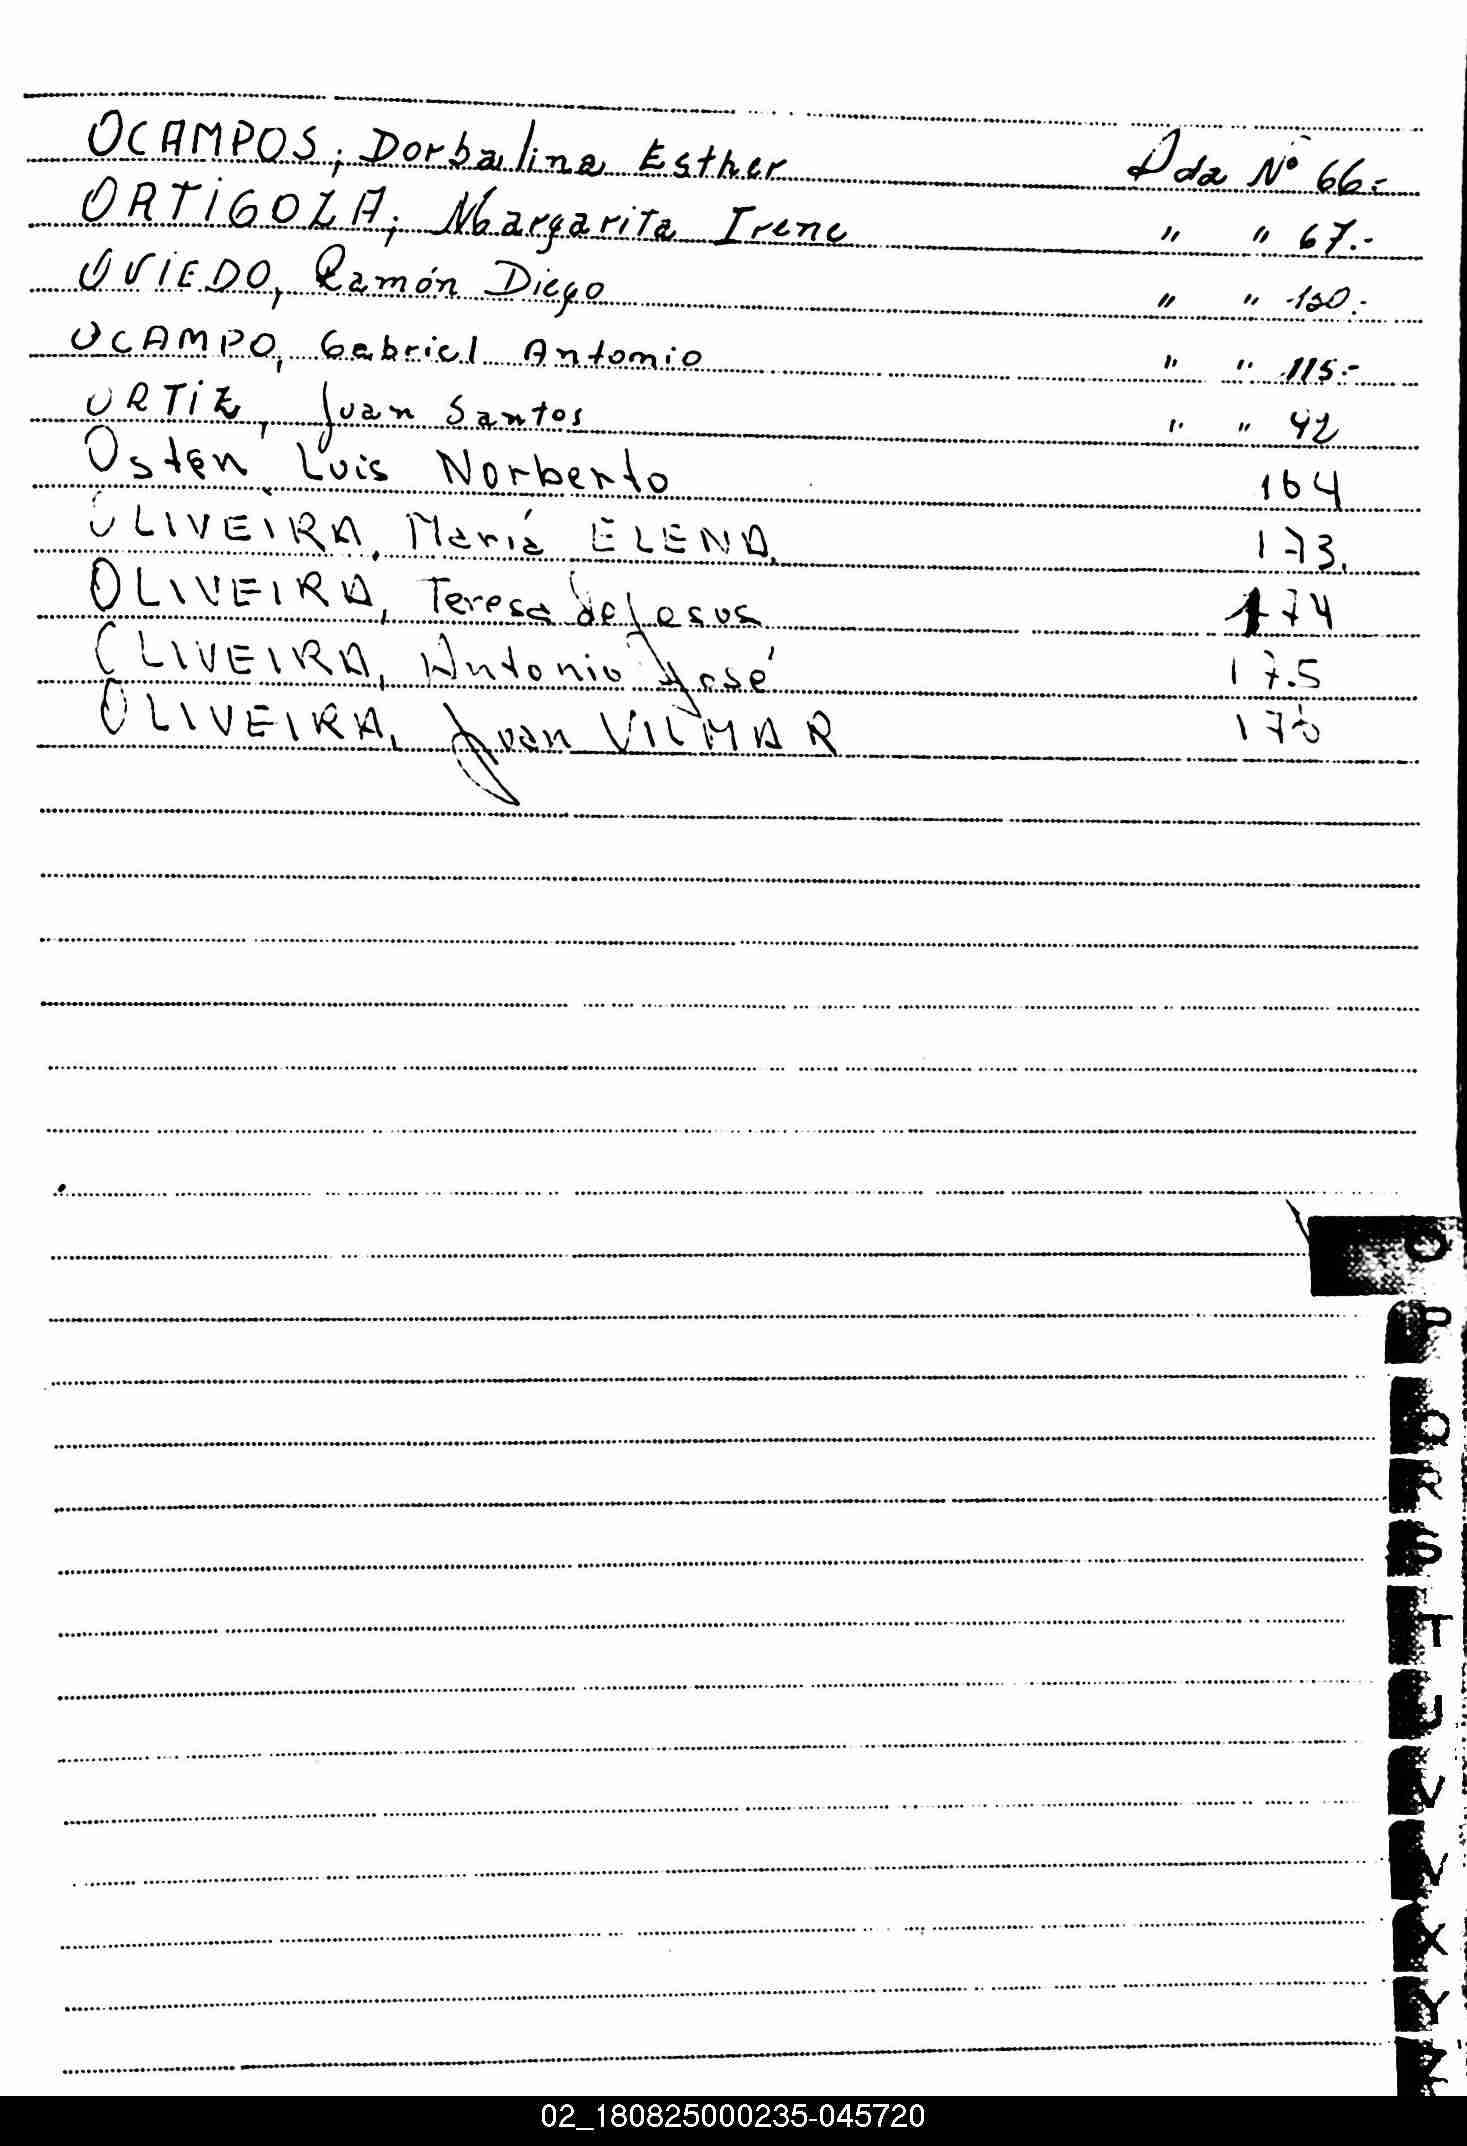 OCAMPOS, Dorbalina Esther Pda Nº 66.-
ORTIGOZA, Margarita Irene " " 67.-
OVIEDO, Ramón Diego " " 120.-
OCAMPO, Gabriel Antonio " " 115.-
ORTIZ, Juan Santos " " 42
Osten, Luis Norberto 164
OLIVEIRA, María ELENA. 173.
OLIVEIRA, Teresa de Jesus 174
OLIVEIRA, Antonio José 175
OLIVEIRA, Juan VILMAR 176
O
P
Q
R
S
T
U
V
X
Y
Z
02_180825000235-045720